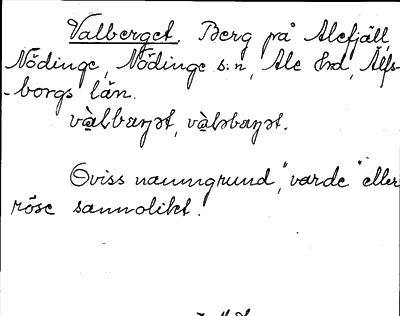 Valberget. Berg på Alefjäll,
Nödinge, Nödinge s:n, Ale hd, Älfs-
-borgs län.
Oviss namngrund, "varde" eller
röse sannolikt.